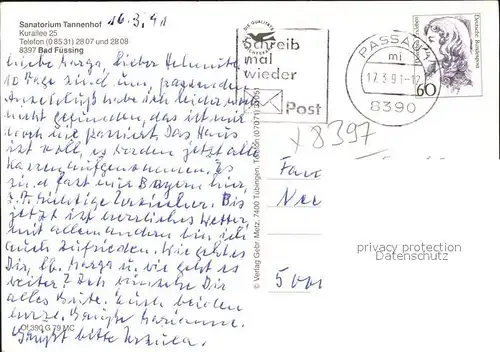 Sanatorium Tannenhof
Kurallee 25
Telefon (0 85 31) 28 07 und 28 08
8397 Bad Füssing
16.3.91
Liebe Marga, lieber Helmut
10 Tage sind um, passenden
Anschluß habe ich leider noch
nicht gefunden, das ist mir
noch nie passiert. Das Haus
ist voll, es werden jetzt alle
Kassen aufgenommen. Es
sind fast nur Bayern hier,
z.T. richtige
jetzt ist herrliches Wetter,
mit allem andern bin ich
auch zufrieden. Wie geht es
Dir, lb. Marga u. wie geht es
weiter? Ich wünsche Dir
alles Gute. Euch beiden
herzl. Grüße Marianne.
Grüßt bitte Ursula.
Of 390 G 79 MC
© Verlag Gebr. Metz, 7400 Tübingen, Telefon (07071)
DIE QUALITÄT
Schreib
mal
wieder
Post
PASSAU
mi
17.3.91-12
8390
Deutsche Bundespost
60
x 8397
Fam
500
privacy protection
Datenschutz